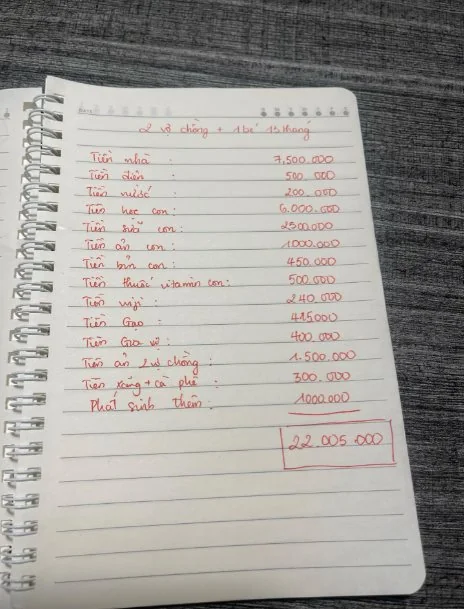 2 vợ chồng + 1 bé 15 tháng
Tiền nhà : 7,500.000
Tiền điện : 500.000
Tiền nước : 200.000
Tiền học con : 6.000.000
Tiền sữa con : 2300.000
Tiền ăn con : 1000.000
Tiền bỉm con : 450.000
Tiền thuốc vitamin con : 500.000
Tiền wifi : 240.000
Tiền Gạo : 415.000
Tiền Gia vị : 400.000
Tiền ăn 2 vợ chồng : 1.500.000
Tiền xăng + cà phê : 300.000
Phát sinh thêm : 1000.000
22.005.000